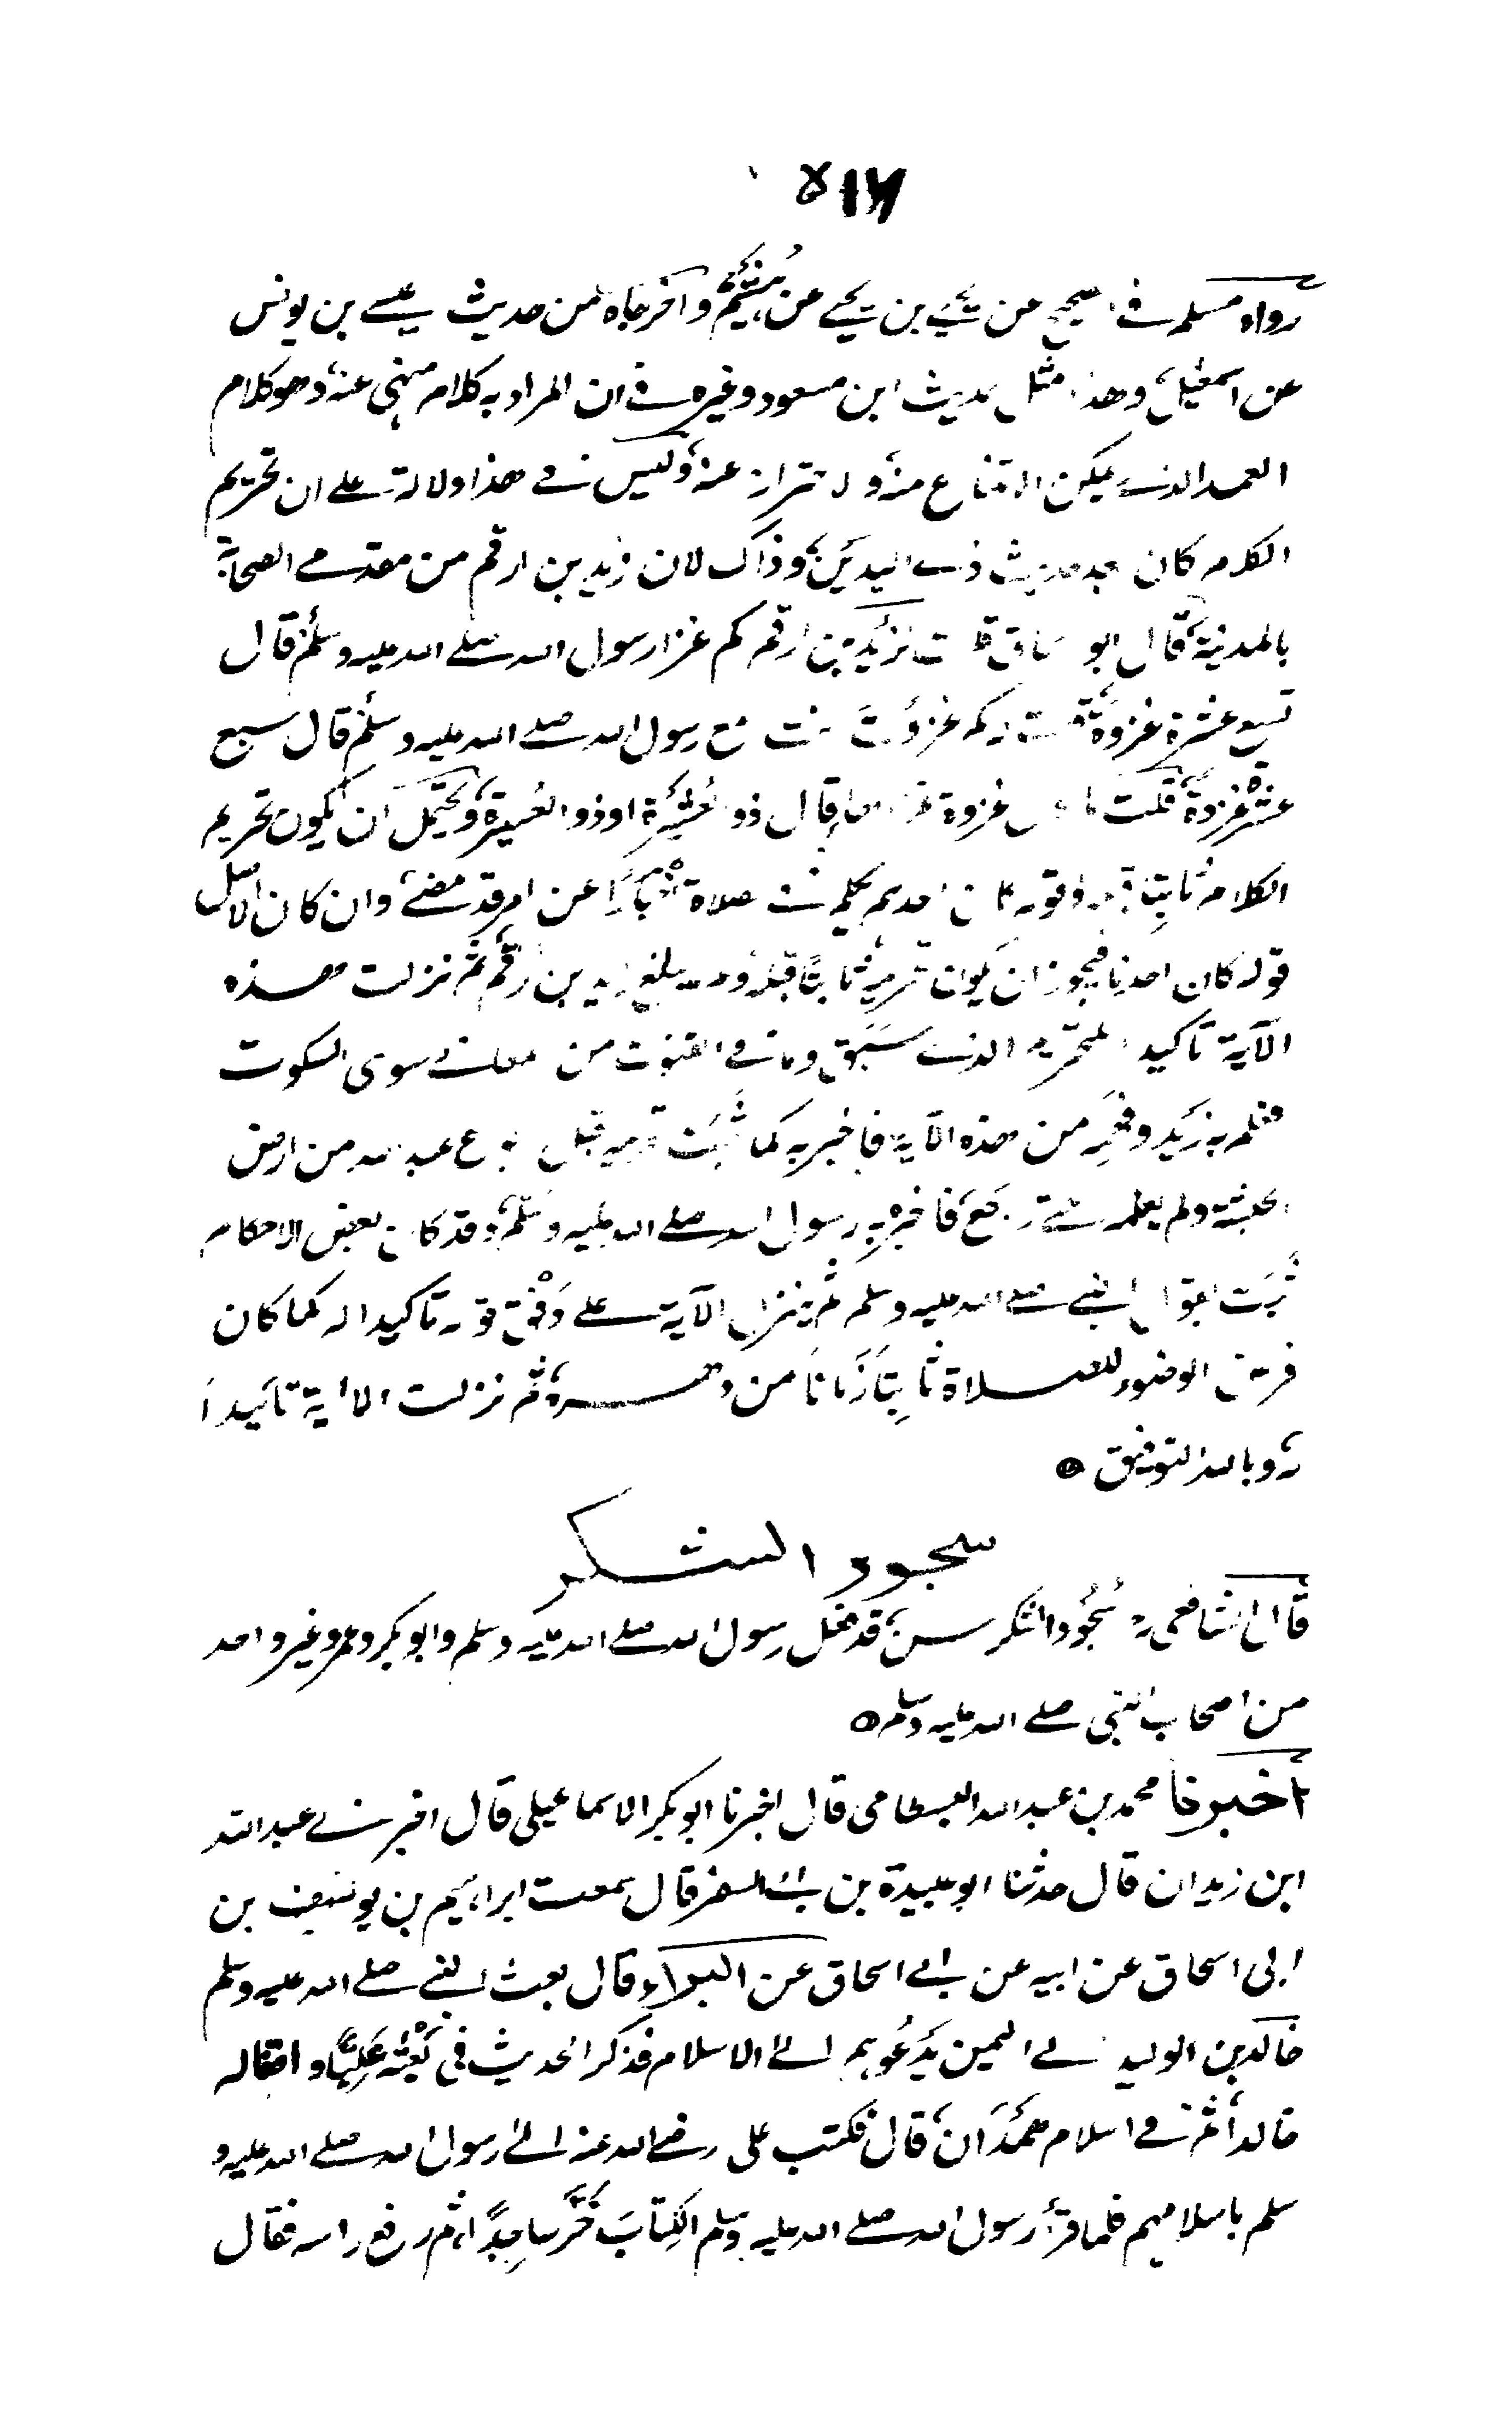 ٥١٦
رواه مسلم في الصحيح عن يحيى بن يحيى عن هُشَيْم واخرجاه من حديث عيسى بن يونس
عن اسمعيل وهذا مثل حديث ابن مسعود وغيره في ان المراد به كلام منهي عنه وهو كلام
العمد الذي يمكن الامتناع منه والاحتراز عنه وليس في هذا دلالة على ان تحريم
الكلام كان بعد حديث ذي اليدين وذاك لان زيد بن ارقم من مقدمي الصحابة
بالمدينة قال ابو اسحاق قلت لزيد بن ارقم كم غزا رسول الله صلى الله عليه وسلم قال
تسع عشرة غزوة قلت كم غزوت انت مع رسول الله صلى الله عليه وسلم قال سبع
عشرة غزوة قلت ما اول غزوة غزاها قال ذو العشيرة او ذو العسيرة ويحتمل ان يكون تحريم
الكلام ثابتا قبله وقوله كان احدهم يكلم في صلاة اخباراً عن امر قد مضى وان كان الاصل
قوله كان احدنا فيجوز ان يكون تحريمه ثابتا قبله ولم يبلغ زيد بن ارقم ثم نزلت هذه
الآية تاكيدا للتحريم الذي سبق وما في القنوت من معنى سوى السكوت
فعلم به زيد وغيره من هذه الآية فاخبر به كما ثبت تحريمه قبل رجوع عبد الله من ارض
الحبشة ولم يعلم حتى رجع فاخبره به رسول الله صلى الله عليه وسلم وقد كان بعض الاحكام
ثبت بقول النبي صلى الله عليه وسلم ثم ينزل الآية على وفق قوله تاكيدا له كما كان
فرض الوضوء للصلاة ثابتا زمانا من ثم نزلت الآية تاكيدا
له وبالله التوفيق ٥
سجود الشكر
قال الشافعي رح سُجُود الشكر حسن قد فعل رسول الله صلى الله عليه وسلم وابو بكر وعمر وغير واحد
من اصحاب النبي صلى الله عليه وسلم ٥
اخبرنا محمد بن عبد الله البسطامي قال اخبرنا ابو بكر الاسماعيلي قال اخبرني عبد الله
ابن زيدان قال حدثنا ابو عبيدة بن ابي السفر قال سمعت ابراهيم بن يوسف بن
ابى اسحاق عن ابيه عن ابي اسحاق عن البراء قال بعث النبي صلى الله عليه وسلم
خالد بن الوليد الى اليمن يَدعُوهم الى الاسلام فذكر الحديث في بَعْثه عَلِيًّا واقفاله
خالداً ثم في اسلام همدان قال فكتب على رضي الله عنه الى رسول الله صلى الله عليه و
سلم باسلامهم فلما قرأ رسول الله صلى الله عليه وسلم الكتابَ خَرَّ ساجِدًا ثم رفع راسه فقال